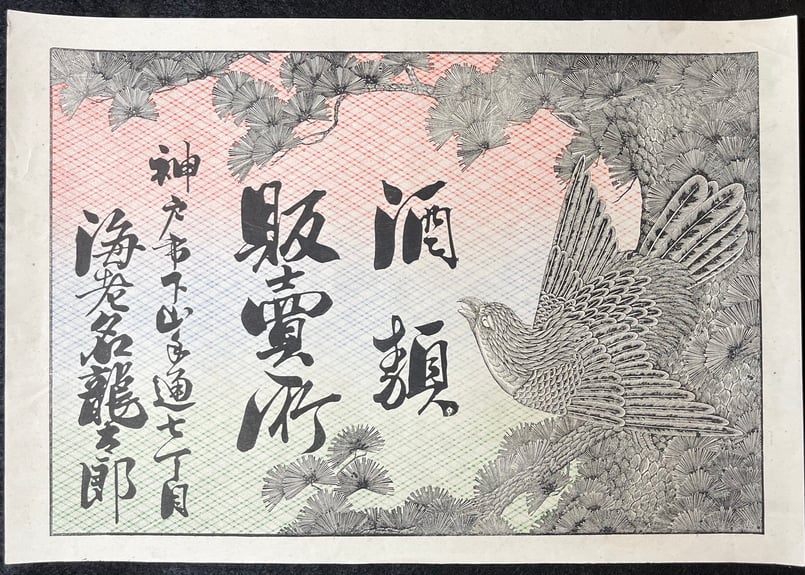 酒類
販賣所
神戸市下山手通七丁目
海老名龍太郎